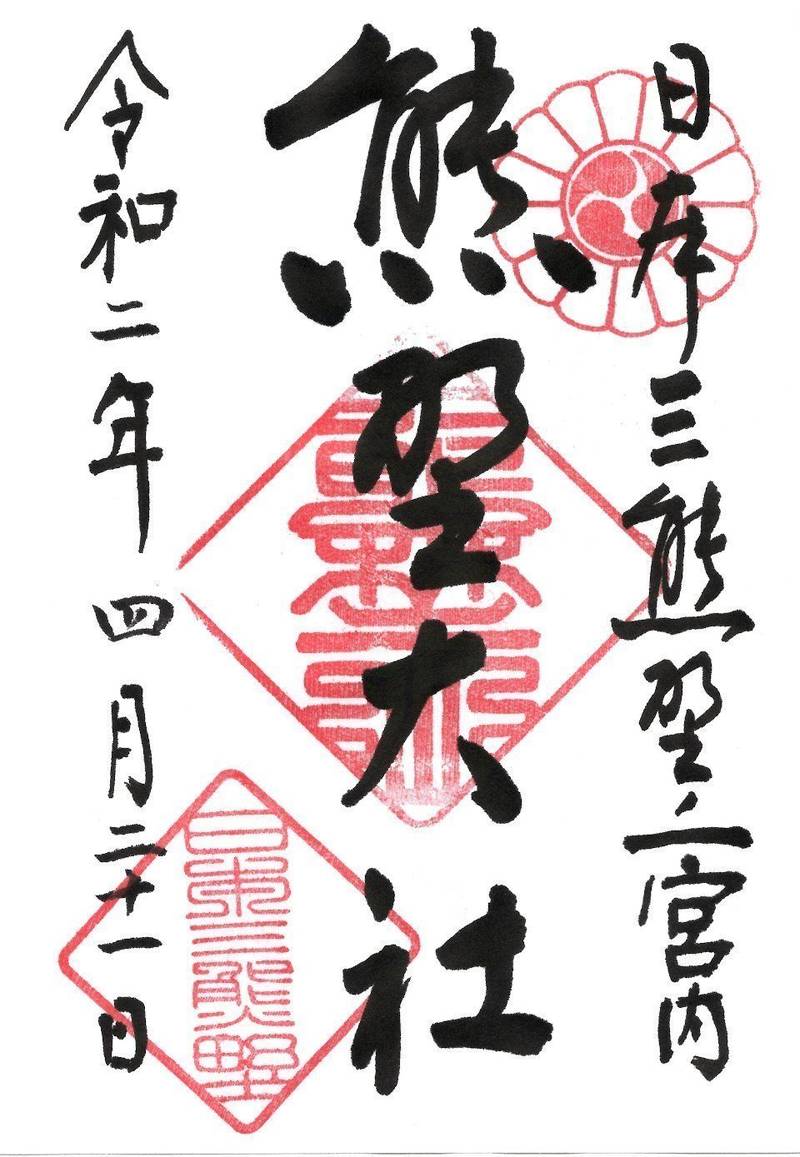 日本三熊野ノ一宮内
熊野大社
令和二年四月二十一日
日本三熊野